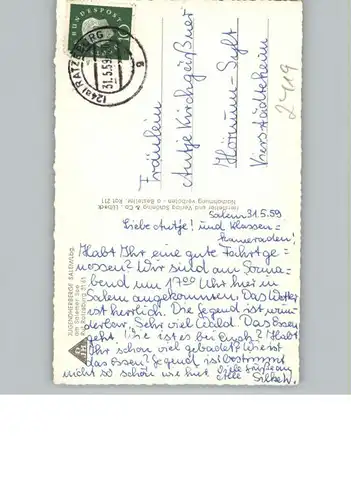 DEUTSCHE BUNDESPOST
10
(24a) RATZEBURG
31.5.59
g
Fräulein
Antje Kirchgäßner
Hörnum-Sylt
Kerstädtheim
2419
Hersteller und Verlag Schöning & Co., Lübeck
Nachahmung verboten
JUGENDHERBERGE SALEM/LBG.
am Salemer See
Salem, 31.5.59
Liebe Antje! und Klassen-
kameraden!
Habt Ihr eine gute Fahrt ge-
nossen? Wir sind am Sonna-
bend um 17.00 Uhr hier in
Salem angekommen. Das Wetter
ist herrlich. Die Gegend ist wun-
derbar. Sehr viel Wald. Das Essen
geht. Wie ist es bei Euch? Habt
Ihr schon viel gebadet? Wie ist
das Essen? Gegend ist bestimmt
nicht so schön wie hier. Viele Grüße an
Alle Silke H.